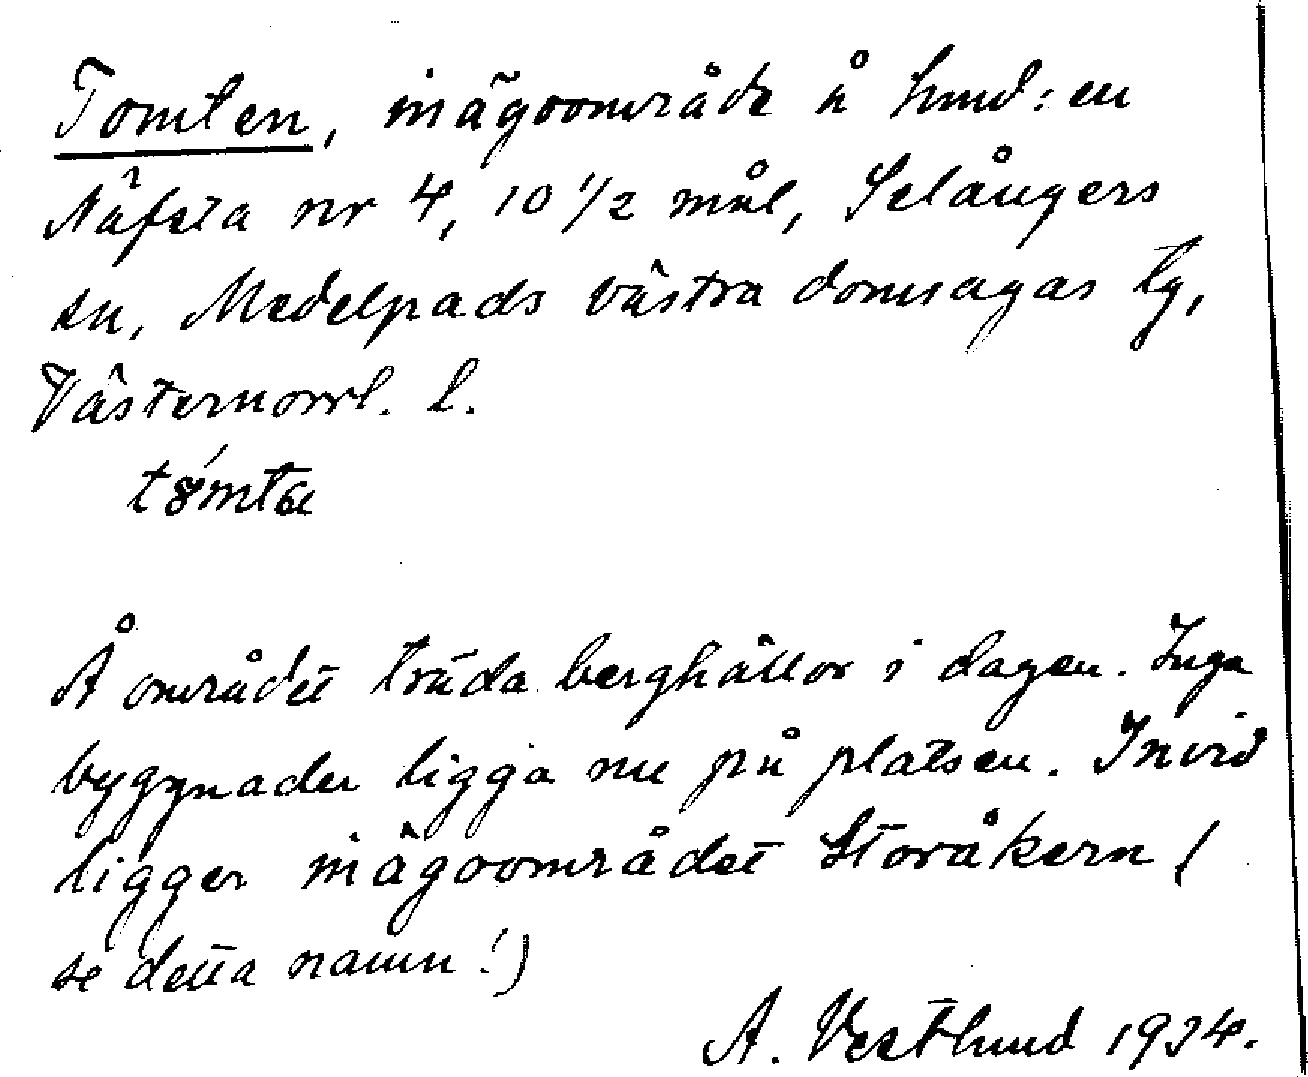 Tomten, inägoområde å hmd:en
Näfsta nr 4, 10 1/2 mål, Selångers
sn, Medelpads västra domsagas tg,
Västernorrl. l.
Å området träda berghällor i dagen. Inga
byggnader ligga nu på platsen. Invid
ligger inägoområdet Storåkern (
se detta namn!)
A. Vestlund 1934.